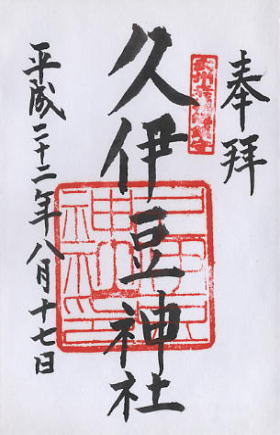 奉拝
久伊豆神社
平成二十二年八月十七日